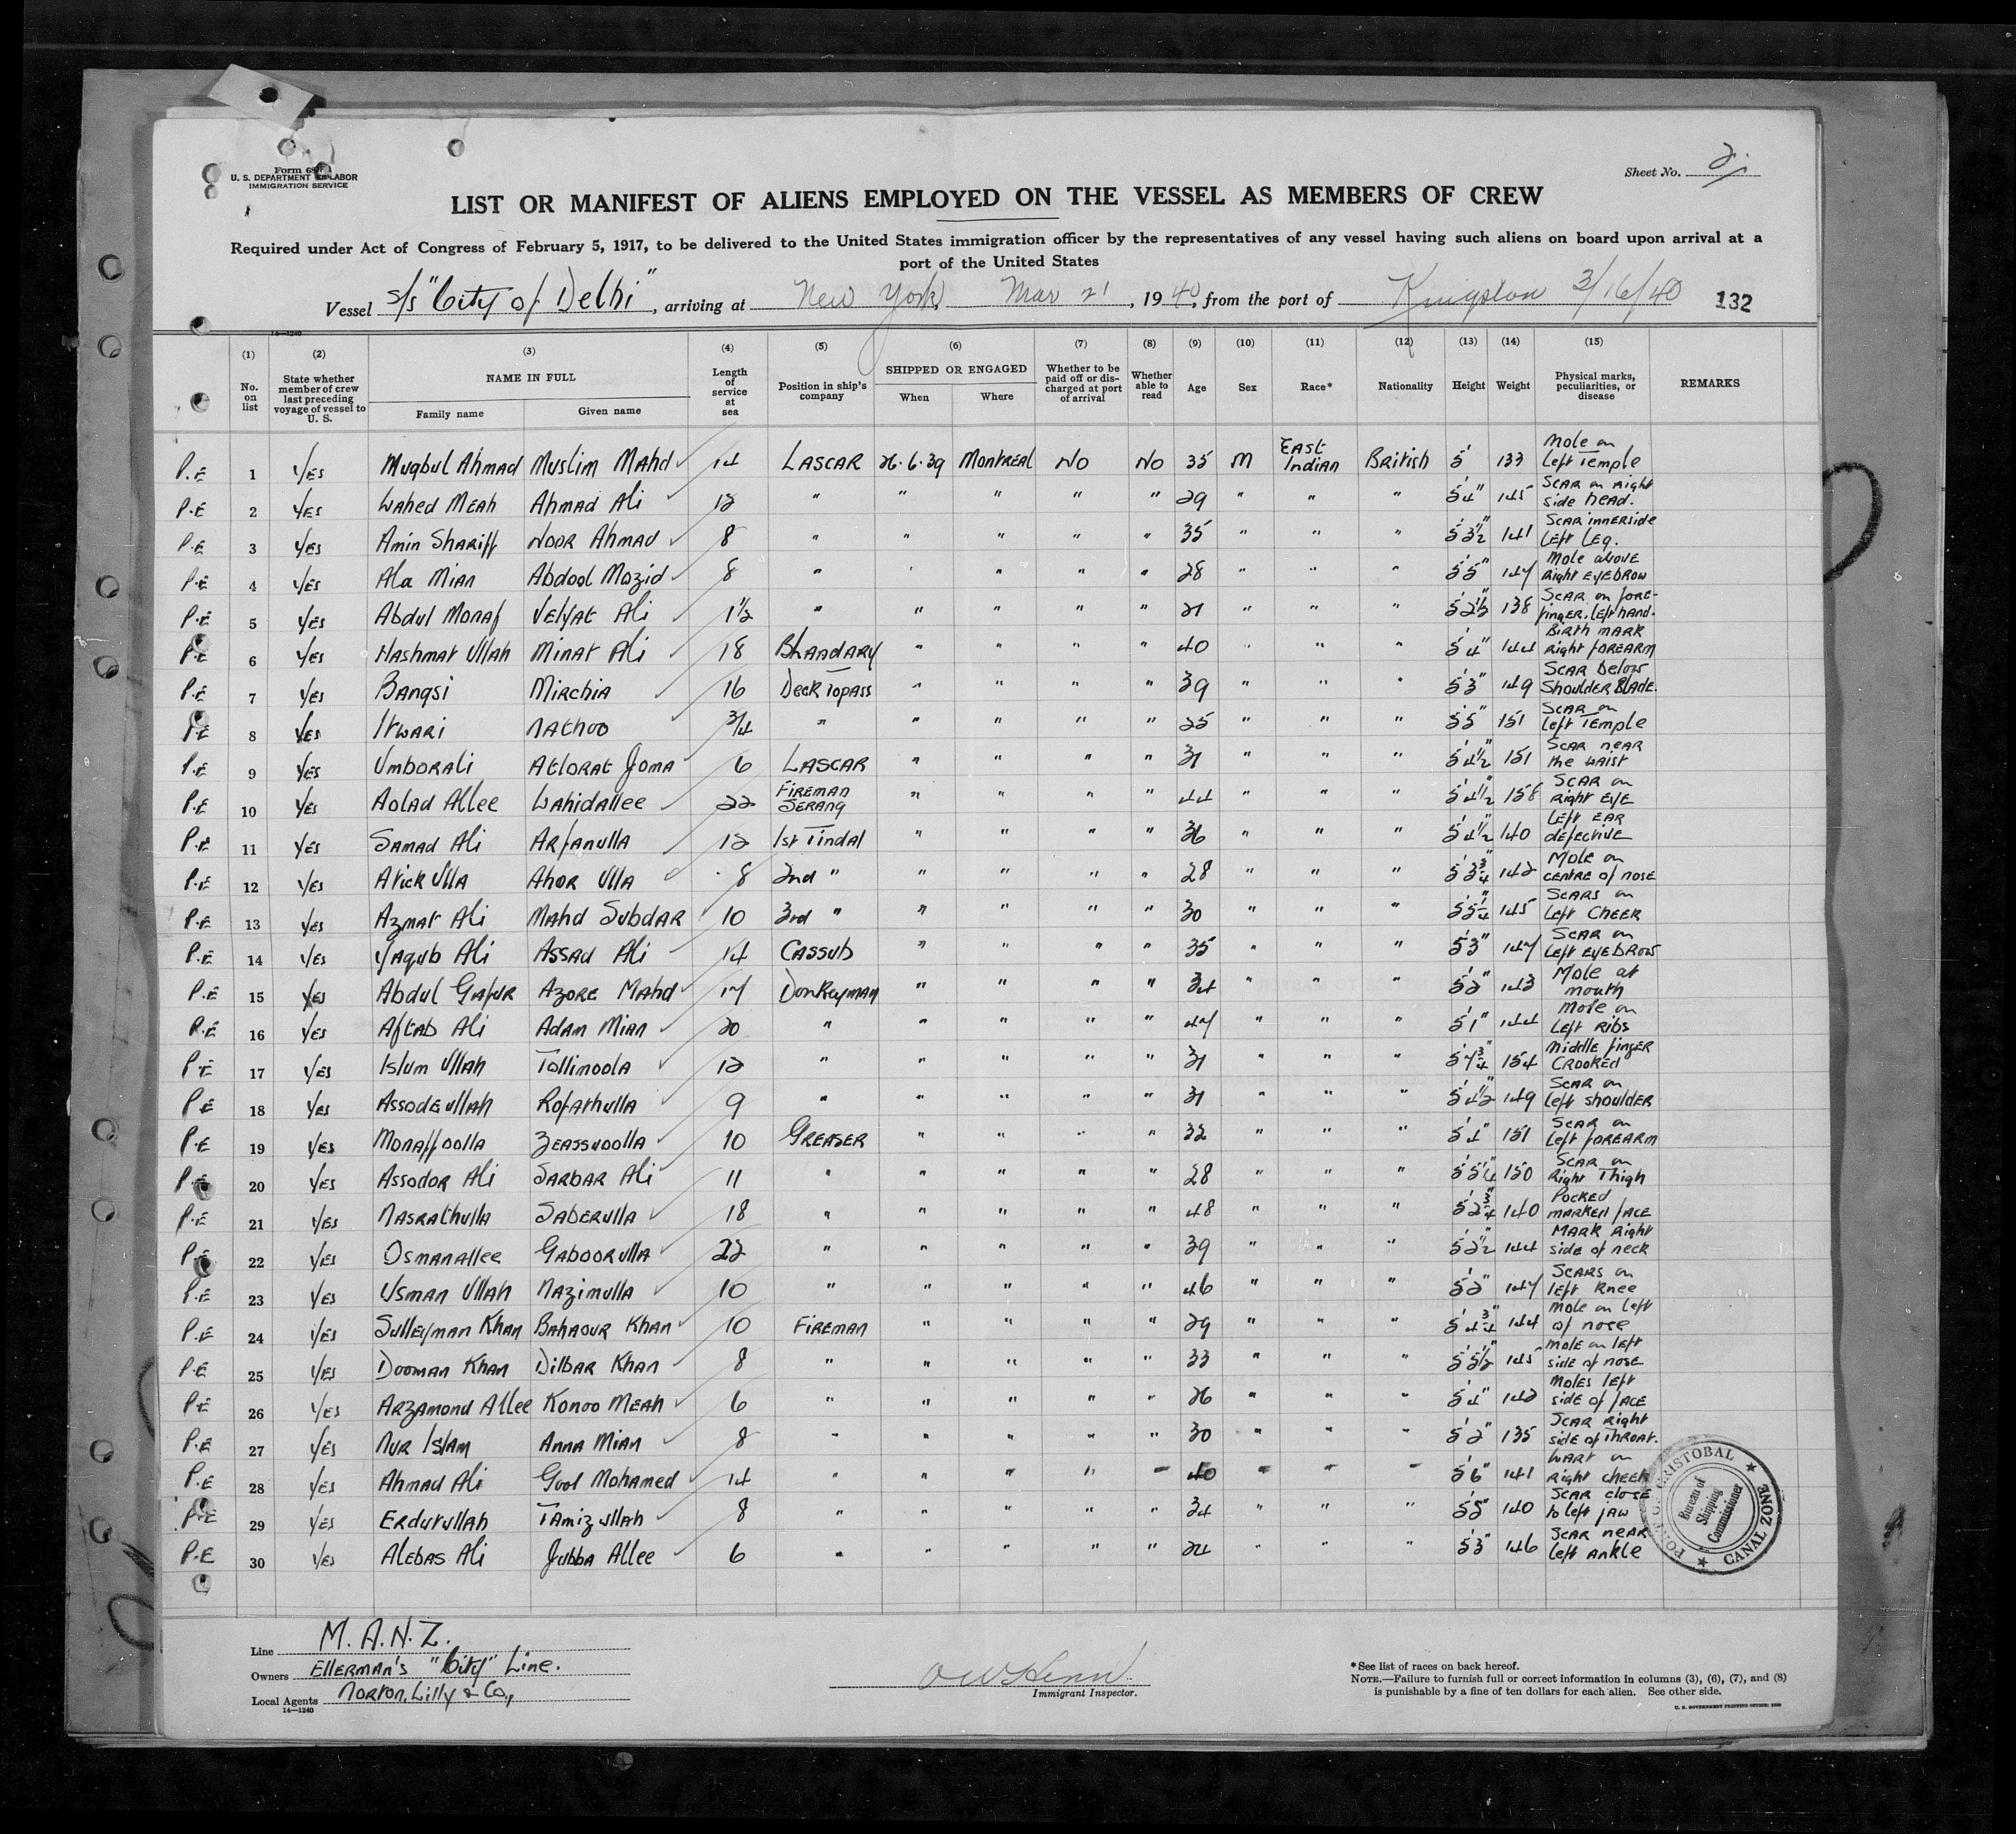 Form 689
U. S. DEPARTMENT OF LABOR
IMMIGRATION SERVICE
Sheet No. 2
LIST OR MANIFEST OF ALIENS EMPLOYED ON THE VESSEL AS MEMBERS OF CREW
Required under Act of Congress of February 5, 1917, to be delivered to the United States immigration officer by the representatives of any vessel having such aliens on board upon arrival at a
port of the United States
Vessel s/s "City of Delhi", arriving at New York, Mar 21, 1940, from the port of Kingston 3/16/40 132
14—1240
(1) No. on list (2) State whether member of crew last preceding voyage of vessel to U. S. (3) NAME IN FULL Family name Given name (4) Length of service at sea (5) Position in ship's company (6) SHIPPED OR ENGAGED When Where (7) Whether to be paid off or discharged at port of arrival (8) Whether able to read (9) Age (10) Sex (11) Race* (12) Nationality (13) Height (14) Weight (15) Physical marks, peculiarities, or disease REMARKS
P.E 1 Yes Muqbul Ahmad Muslim Mahd 14 Lascar 26.6.39 Montreal No No 35 M East Indian British 5' 133 Mole on left Temple
P.E 2 Yes Wahed Meah Ahmad Ali 12 " " " " " 29 " " " 5'4" 145 Scar on right side head.
P.E 3 Yes Amin Shariff Noor Ahmad 8 " " " " " 35 " " " 5'3½" 141 Scar innerside left leg.
P.E 4 Yes Ala Mian Abdool Mozid 8 " " " " " 28 " " " 5'5" 147 Mole above right eyebrow
P.E 5 Yes Abdul Monaf Velyat Ali 1½ " " " " " 21 " " " 5'2½" 138 Scar on fore-finger. left hand.
P.E 6 Yes Hashmat Ullah Minat Ali 18 Bhandary " " " " 40 " " " 5'4" 144 Birth mark right forearm
P.E 7 Yes Bangsi Mirchia 16 Deck Topass " " " " 39 " " " 5'3" 149 Scar below shoulder blade.
P.E 8 Yes Itwari Nathoo 3/4 " " " " " 25 " " " 5'5" 151 Scar on left Temple
P.E 9 Yes Umborali Atlorat Joma 6 Lascar " " " " 31 " " " 5'4½" 151 Scar near the waist
P.E 10 Yes Aolad Allee Wahidallee 22 Fireman Serang " " " " 44 " " " 5'4½" 158 Scar on right eye
P.E 11 Yes Samad Ali Arfanulla 12 1st Tindal " " " " 36 " " " 5'4½" 140 Left ear defective
P.E 12 Yes Atick Ulla Ahor Ulla 8 2nd " " " " " 28 " " " 5'3¾" 142 Mole on centre of nose
P.E 13 Yes Azmat Ali Mahd Subdar 10 3rd " " " " " 30 " " " 5'5¼" 145 Scars on left cheek
P.E 14 Yes Yaqub Ali Assad Ali 14 Cassub " " " " 35 " " " 5'3" 147 Scar on left eyebrow
P.E 15 Yes Abdul Gafur Azore Mahd 17 Donkeyman " " " " 34 " " " 5'2" 143 Mole at mouth
P.E 16 Yes Aftab Ali Adam Mian 20 " " " " " 47 " " " 5'1" 144 Mole on left ribs
P.E 17 Yes Islum Ullah Tollimoola 12 " " " " " 31 " " " 5'7¾" 154 Middle finger crooked
P.E 18 Yes Assodeullah Rofathulla 9 " " " " " 31 " " " 5'4½" 149 Scar on left shoulder
P.E 19 Yes Monaffoolla Zeassudolla 10 Greaser " " " " 32 " " " 5'4" 151 Scar on left forearm
P.E 20 Yes Assodor Ali Sarbar Ali 11 " " " " " 28 " " " 5'5¼" 150 Scar on right Thigh
P.E 21 Yes Nasrathulla Saberulla 18 " " " " " 48 " " " 5'2¾" 140 Pocked marked face
P.E 22 Yes Osmanallee Gaboorulla 22 " " " " " 39 " " " 5'2½" 144 Mark right side of neck
P.E 23 Yes Usman Ullah Nazimulla 10 " " " " " 46 " " " 5'2" 147 Scars on left knee
P.E 24 Yes Sulleyman Khan Bahadur Khan 10 Fireman " " " " 29 " " " 5'4¾" 144 Mole on left of nose
P.E 25 Yes Dooman Khan Dilbar Khan 8 " " " " " 33 " " " 5'5½" 145 Mole on left side of nose
P.E 26 Yes Arzamond Allee Konoo Meah 6 " " " " " 26 " " " 5'4" 142 Moles left side of face
P.E 27 Yes Nur Islam Anna Mian 8 " " " " " 30 " " " 5'2" 135 Scar right side of throat.
P.E 28 Yes Ahmad Ali Gool Mohamed 14 " " " " " 40 " " " 5'6" 141 Wart on right cheek
P.E 29 Yes Erdutullah Tamizullah 8 " " " " " 34 " " " 5'5" 140 Scar close to left jaw
P.E 30 Yes Alebas Ali Jubba Allee 6 " " " " " 24 " " " 5'3" 146 Scar near left ankle
PORT OF CRISTOBAL ★ CANAL ZONE ★
Bureau of
Shipping
Commissioner
Line M.A.N.Z.
Owners Ellerman's "City" Line.
Local Agents Norton, Lilly & Co.,
14—1240
Immigrant Inspector.
*See list of races on back hereof.
NOTE.—Failure to furnish full or correct information in columns (3), (6), (7), and (8)
is punishable by a fine of ten dollars for each alien. See other side.